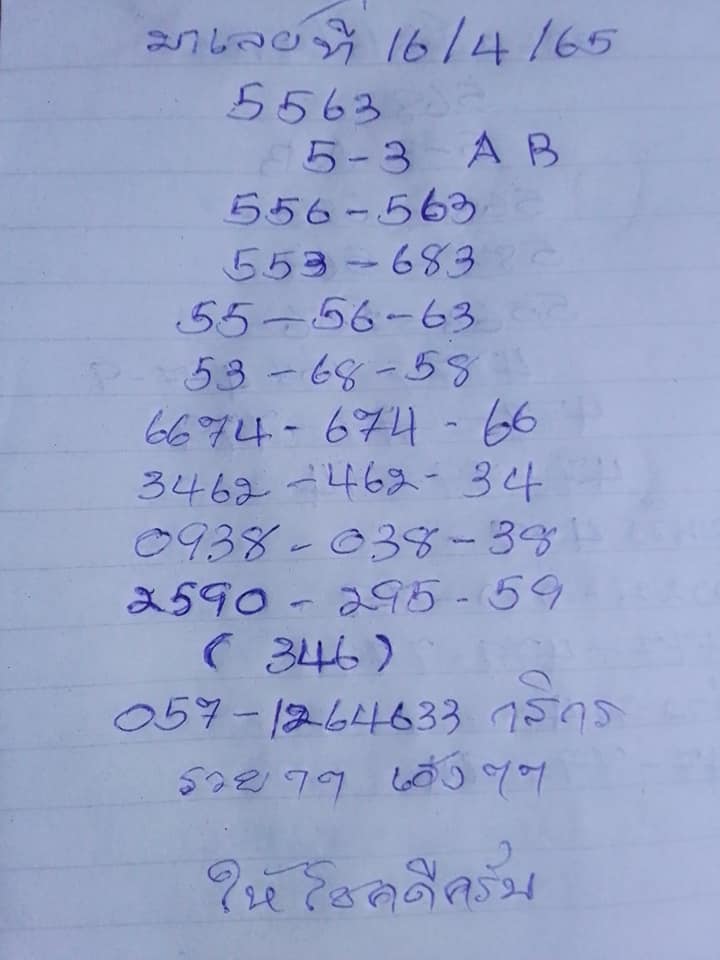 มาเลย์ที่ 16/4/65
5563
5-3 A B
556-563
553-683
55-56-63
53-68-58
6674-674-66
3462-462-34
0938-038-38
2590-295-59
(346)
057-1264633 กสิกร
รวยๆๆ เฮงๆๆ
ให้โชคดีครับ